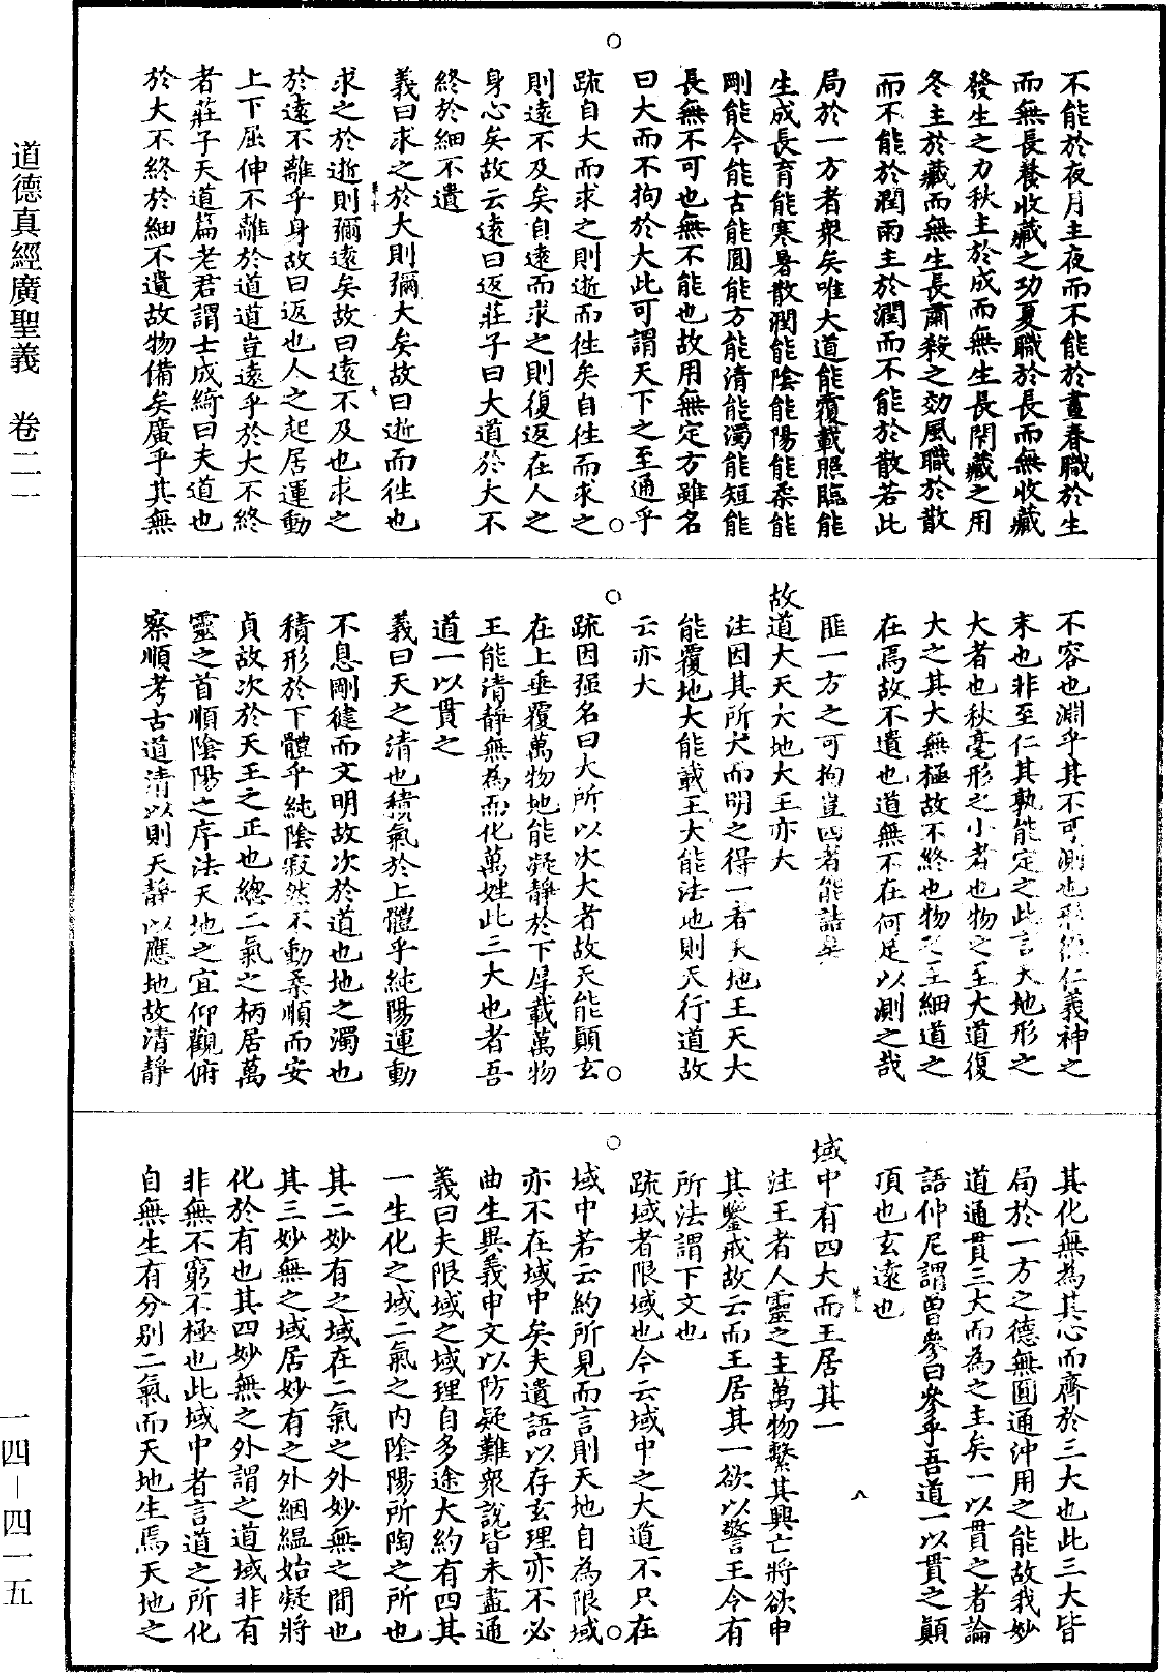 道德真經廣聖義　卷二一
不能於夜月主夜而不能於晝春職於生
而無長養收藏之功夏職於長而無收藏
發生之力秋主於成而無生長閉藏之用
冬主於藏而無生長肅殺之效風職於散
而不能於潤雨主於潤而不能於散若此
局於一方者衆矣唯大道能覆載照臨能
生成長育能寒暑散潤能陰能陽能柔能
剛能今能古能圓能方能清能濁能短能
長無不可也無不能也故用無定方雖名
曰大而不拘於大此可謂天下之至通乎
疏自大而求之則逝而徃矣自徃而求之
則遠不及矣自遠而求之則復返在人之
身心矣故云遠曰返莊子曰大道於大不
終於細不遺
義曰求之於大則彌大矣故曰逝而徃也
求之於逝則彌遠矣故曰遠不及也求之
於遠不離乎身故曰返也人之起居運動
上下屈伸不離於道道豈遠乎於大不終
者莊子天道篇老君謂士成綺曰夫道也
於大不終於細不遺故物備矣廣乎其無
不容也淵乎其不可測也形德仁義神之
末也非至仁其孰能定之此言天地形之
大者也秋毫形之小者也物之至大道復
大之其大無極故不終也物之至細道之
在焉故不遺也道無不在何足以測之哉
匪一方之可拘豈四著能詰矣
故道大天大地大王亦大
注因其所大而明之得一者天地王天大
能覆地大能載王大能法地則天行道故
云亦大
疏因强名曰大所以次大者故天能顚玄
在上垂覆萬物地能凝靜於下厚載萬物
王能清靜無為而化萬姓此三大也者吾
道一以貫之
義曰天之清也積氣於上體乎純陽運動
不息剛健而文明故次於道也地之濁也
積形於下體乎純陰寂然不動柔順而安
貞故次於天王之正也總二氣之柄居萬
靈之首順陰陽之序法天地之宜仰觀俯
察順考古道清以則天靜以應地故清靜
其化無為其心而齊於三大也此三大皆
局於一方之德無圓通沖用之能故我妙
道通貫三大而為之主矣一以貫之者論
語仲尼謂曾參曰參乎吾道一以貫之顚
頂也玄遠也
域中有四大而王居其一
注王者人靈之主萬物繫其興亡將欲申
其鑒戒故云而王居其一欲以警王令有
所法謂下文也
疏域者限域也今云域中之大道不只在
域中若云約所見而言則天地自為限域
亦不在域中矣夫遺語以存玄理亦不必
曲生異義申文以防疑難衆說皆未盡通
義曰夫限域之域理自多途大約有四其
一生化之域二氣之内陰陽所陶之所也
其二妙有之域在二氣之外妙無之間也
其三妙無之域居妙有之外絪縕始凝將
化於有也其四妙無之外謂之道域非有
非無不窮不極也此域中者言道之所化
自無生有分别二氣而天地生焉天地之
一四－四一五